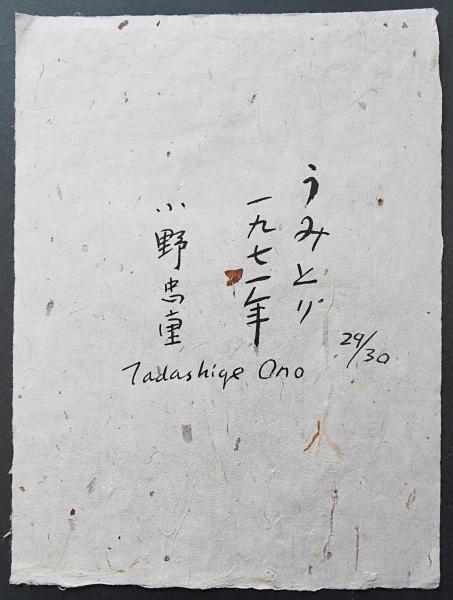 うみとり
一九七一年
小野忠重
29/30
Tadashige Ono